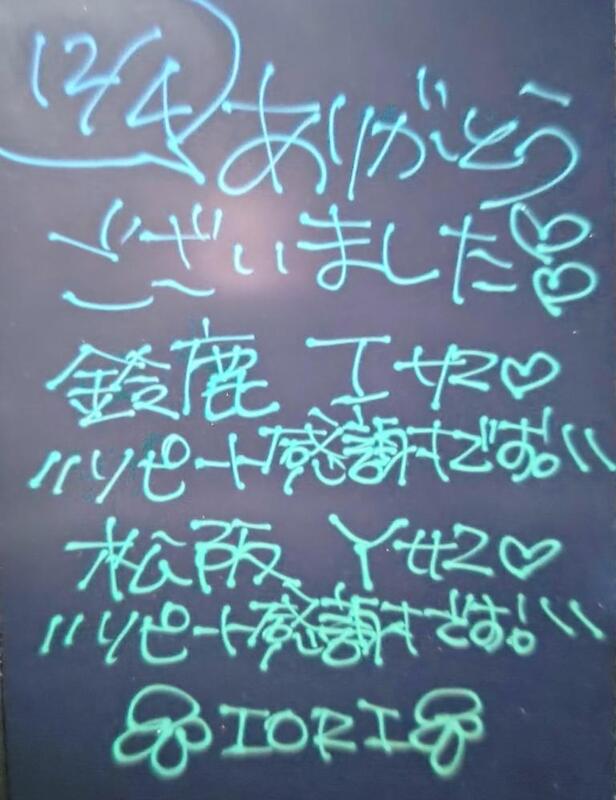 12/4 ありがとう
ございました♡♡
鈴鹿 Iサマ♡
〃リピート感謝です。〃
松阪 Yサマ♡
〃リピート感謝です!〃
IORI